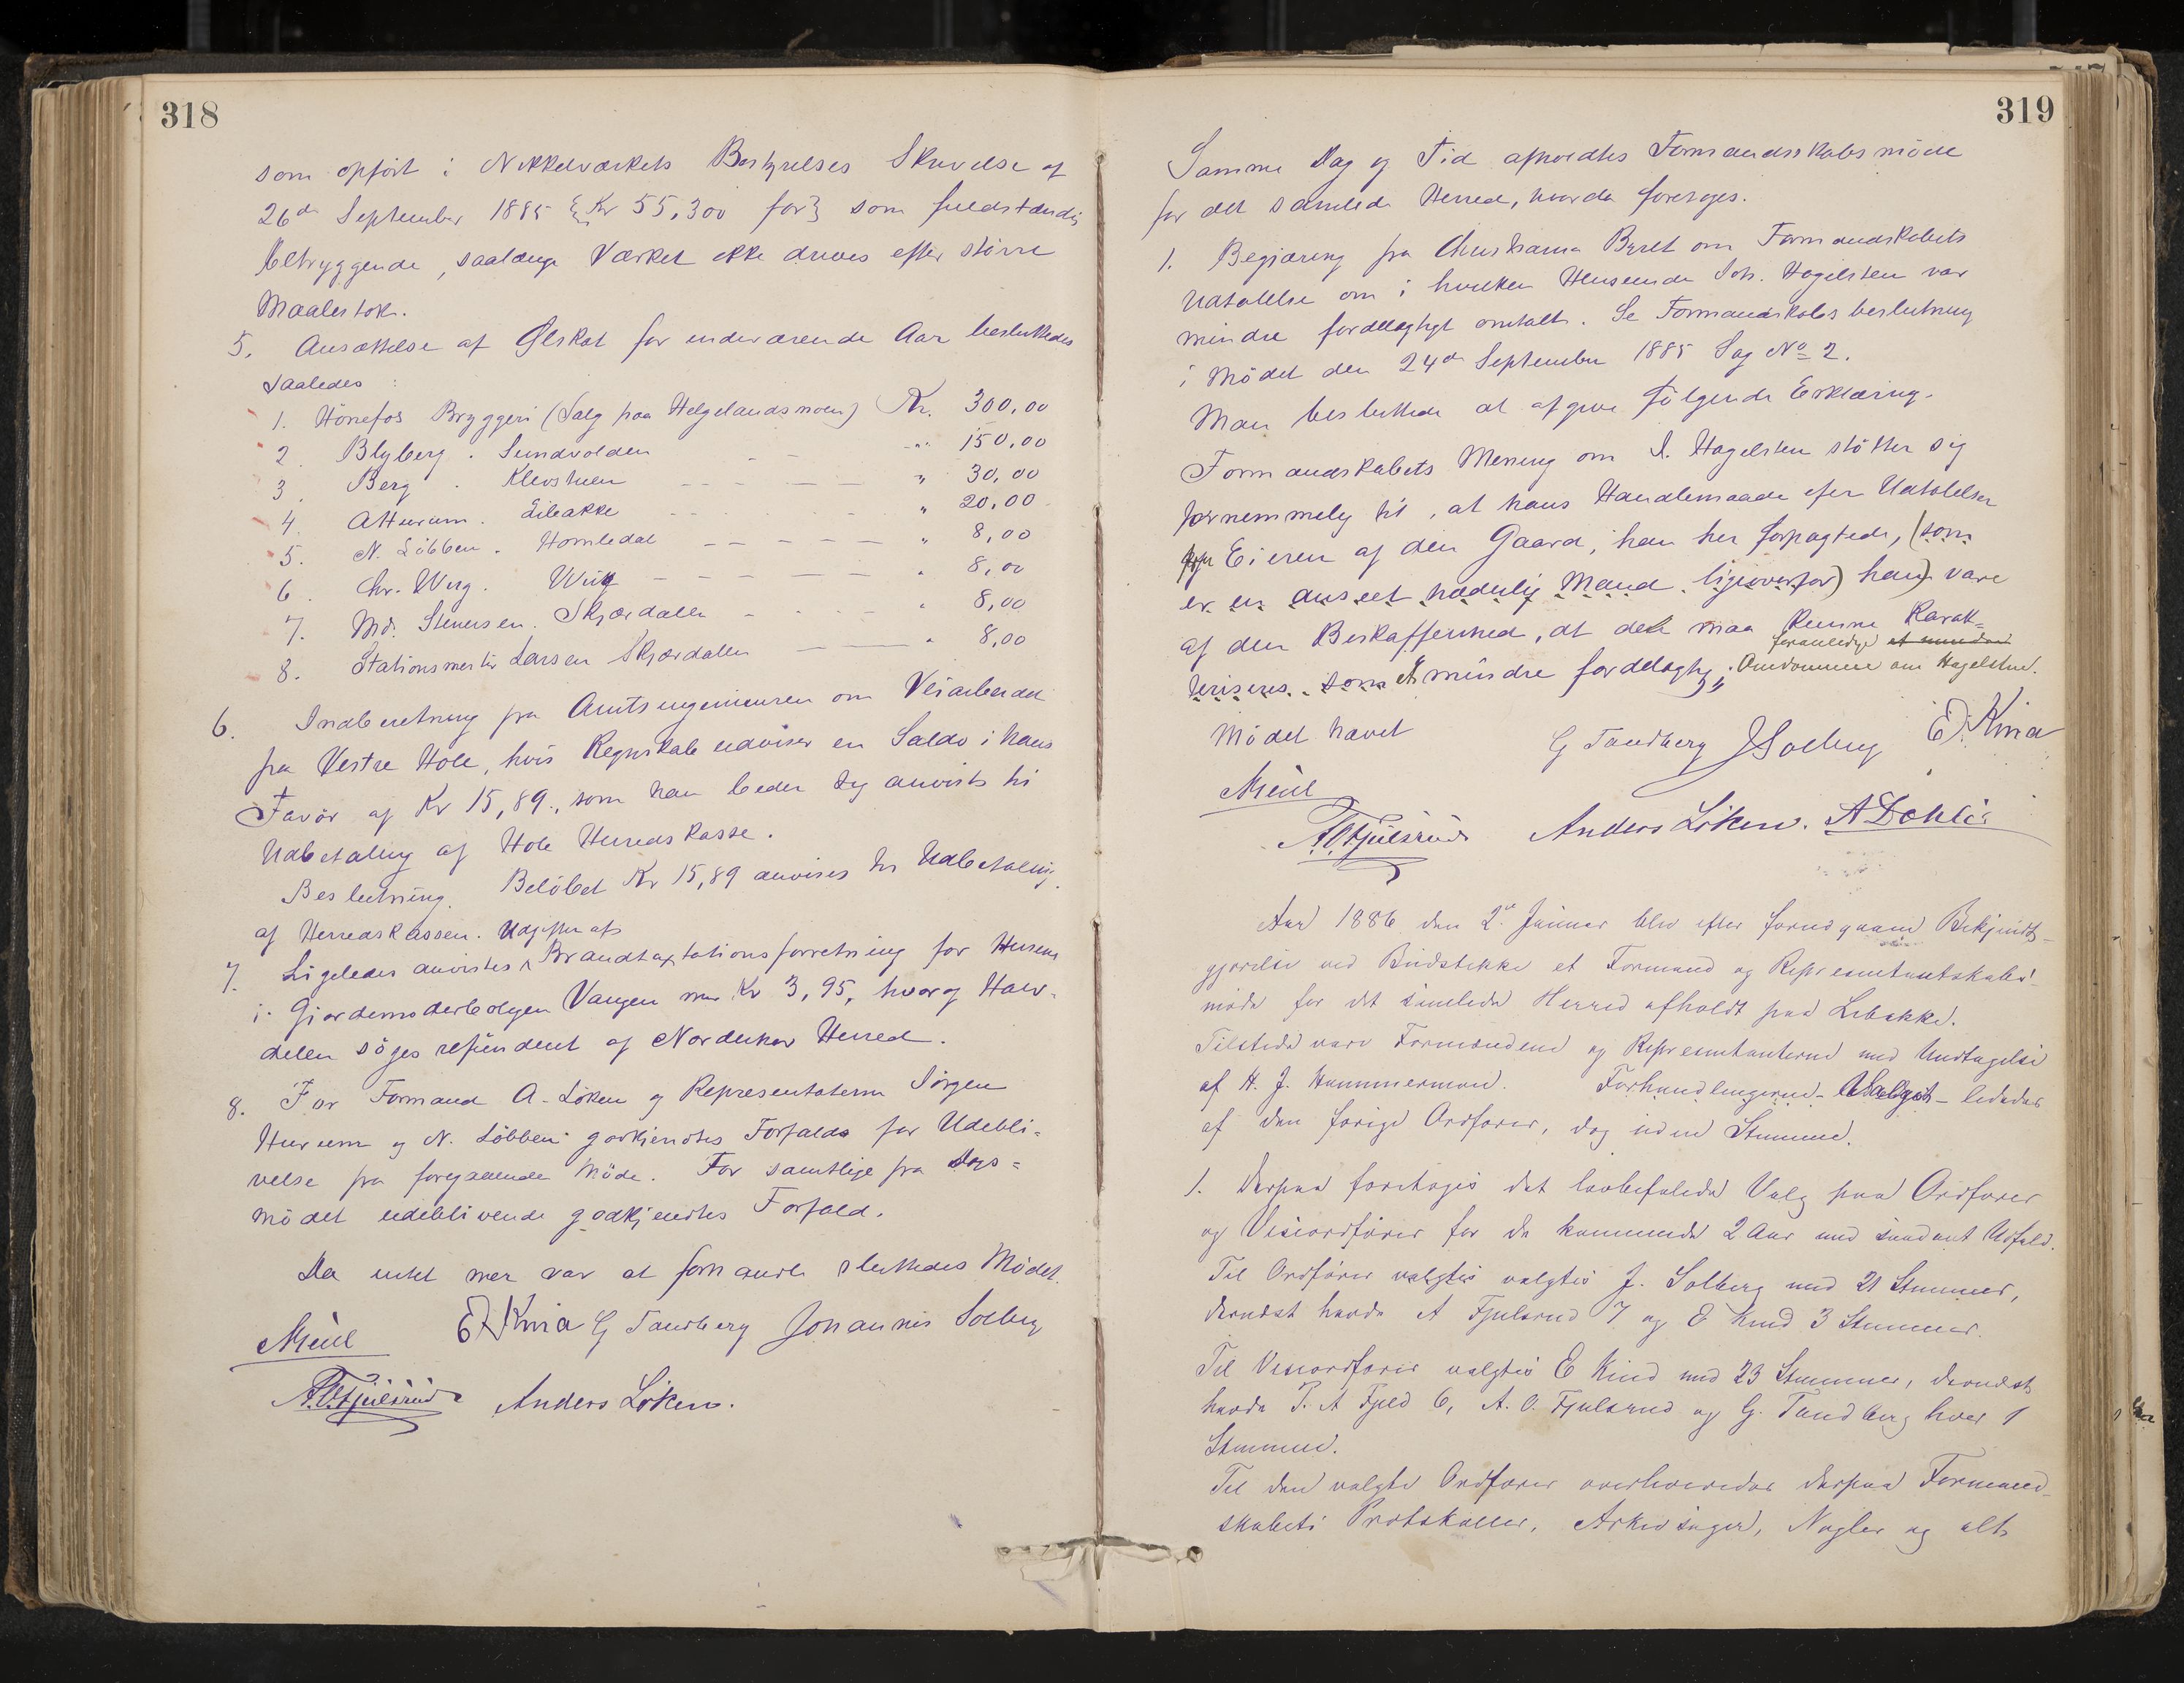 318
som opført i Nikkelværkets Bestyrelses Skrivelse af
26de September 1885 {Kr 55,300 for} som fuldstændig
betryggende, saalænge Værket ikke drives efter större
Maalestok.
5. Ansættelse af Ølskat for indeværende Aar besluttedes
saaledes:
1. Hönefos Bryggeri (Salg paa Helgelandsmoen) Kr. 300,00
2. Blyberg. Sundvolden - - " 150,00
3. Berg. Klevstuen - - - - - " 30,00
4. Atterum. Libakke - - - - " 20,00
5. N. Löbben. Homledal - - - - - " 8,00
6. Chr. Wiig. Wiig - - - - - " 8,00
7. Md. Stenersen. Skjærdalen - - - - " 8,00
8. Stationsmester Larsen Skjærdalen - - " 8,00
6. Indberetning fra Amtsingeniøren om Veiarbeidet
fra Vestre Hole, hvis Regnskab udviser en Saldo i hans
Favör af Kr 15,89., som han beder sig anvist til
Udbetaling af Hole Herredskasse.
Beslutning. Belöbet Kr 15,89 anvises til Udbetaling
af Herredskassen. Udgifter af
7. Ligeledes anvistes Brandtaxtationsforretning for Husene
i Gjordemoderboligen Vangen med Kr 3,95, hvoraf Halv-
delen söges refunderet af Norderhov Herred.
8. For Formand A. Löken og Representaterne Jörgen
Hurum og N. Löbben godkjendtes Forfald for Udebli-
velse fra foregaaende Möde. For samtlige fra Dags=
mödet udeblivende godkjendtes Forfald.
Da intet mer var at forhandle sluttedes Mödet.
Meil E Kind G Tandberg Johannes Solberg
A.O.Fjulsrud Anders Löken.
319
Samme Dag og Tid afholdtes Formandsskabsmöde
for det samlede Herred, hvorda foretoges.
1. Begjæring fra Christiania Byret om Formandskabets
Udtalelse om i hvilken Henseende Joh. Hagelsten var
mindre fordelagtigt omtalt. Se Formandskabs beslutning
i Mödet den 24de September 1885 Sag No 2.
Man besluttede at afgive følgende Erklæring.
Formandskabets Mening om J. Hagelsten stötter sig
fornemmelig til, at hans Handlemaade efter Udtalelser
fra Eieren af den Gaard, han her forpagtede, (som
er en anseet hæderlig Mand ligeoverfor) ham) vare
af den Beskaffenhed, at det maa kunne Karak-
foranledige et mindre
teriseres som et mindre fordelagtig Omdömme om Hagelsten.
Mödet hævet
G Tandberg J Solberg E Kind
Meil
A.O.Fjulsrud Anders Löken. A Dehli
Aar 1886 den 2de Januar blev efter forudgaaende Bekjendt-
gjørelse ved Budstikke et Formand og Representantskabs-
møde for det samlede Herred afholdt paa Libakke.
Tilstede vare Formændene og Representanterne med Undtagelse
af H. J. Hammermoen. Forhandlingerne - Valget - lededes
af den forige Ordfører, dog uden Stemme.
1. Derpaa foretoges det lovbefalede Valg paa Ordfører
og Viceordfører for de kommende 2 Aar med saadant Udfald.
Til Ordfører valgtes valgtes J. Solberg med 21 Stemmer,
dernæst havde A Fjulsrud 7 og E Kind 3 Stemmer.
Til Viceordfører valgtes E Kind med 23 Stemmer, dernæst
havde P. A Fjeld 6, A. O. Fjulsrud og G. Tandberg hver 1
Stemme.
Til den valgte Ordfører overleveredes derpaa Formand-
skabets Protokoller, Arkivsager, Nøgler og alt